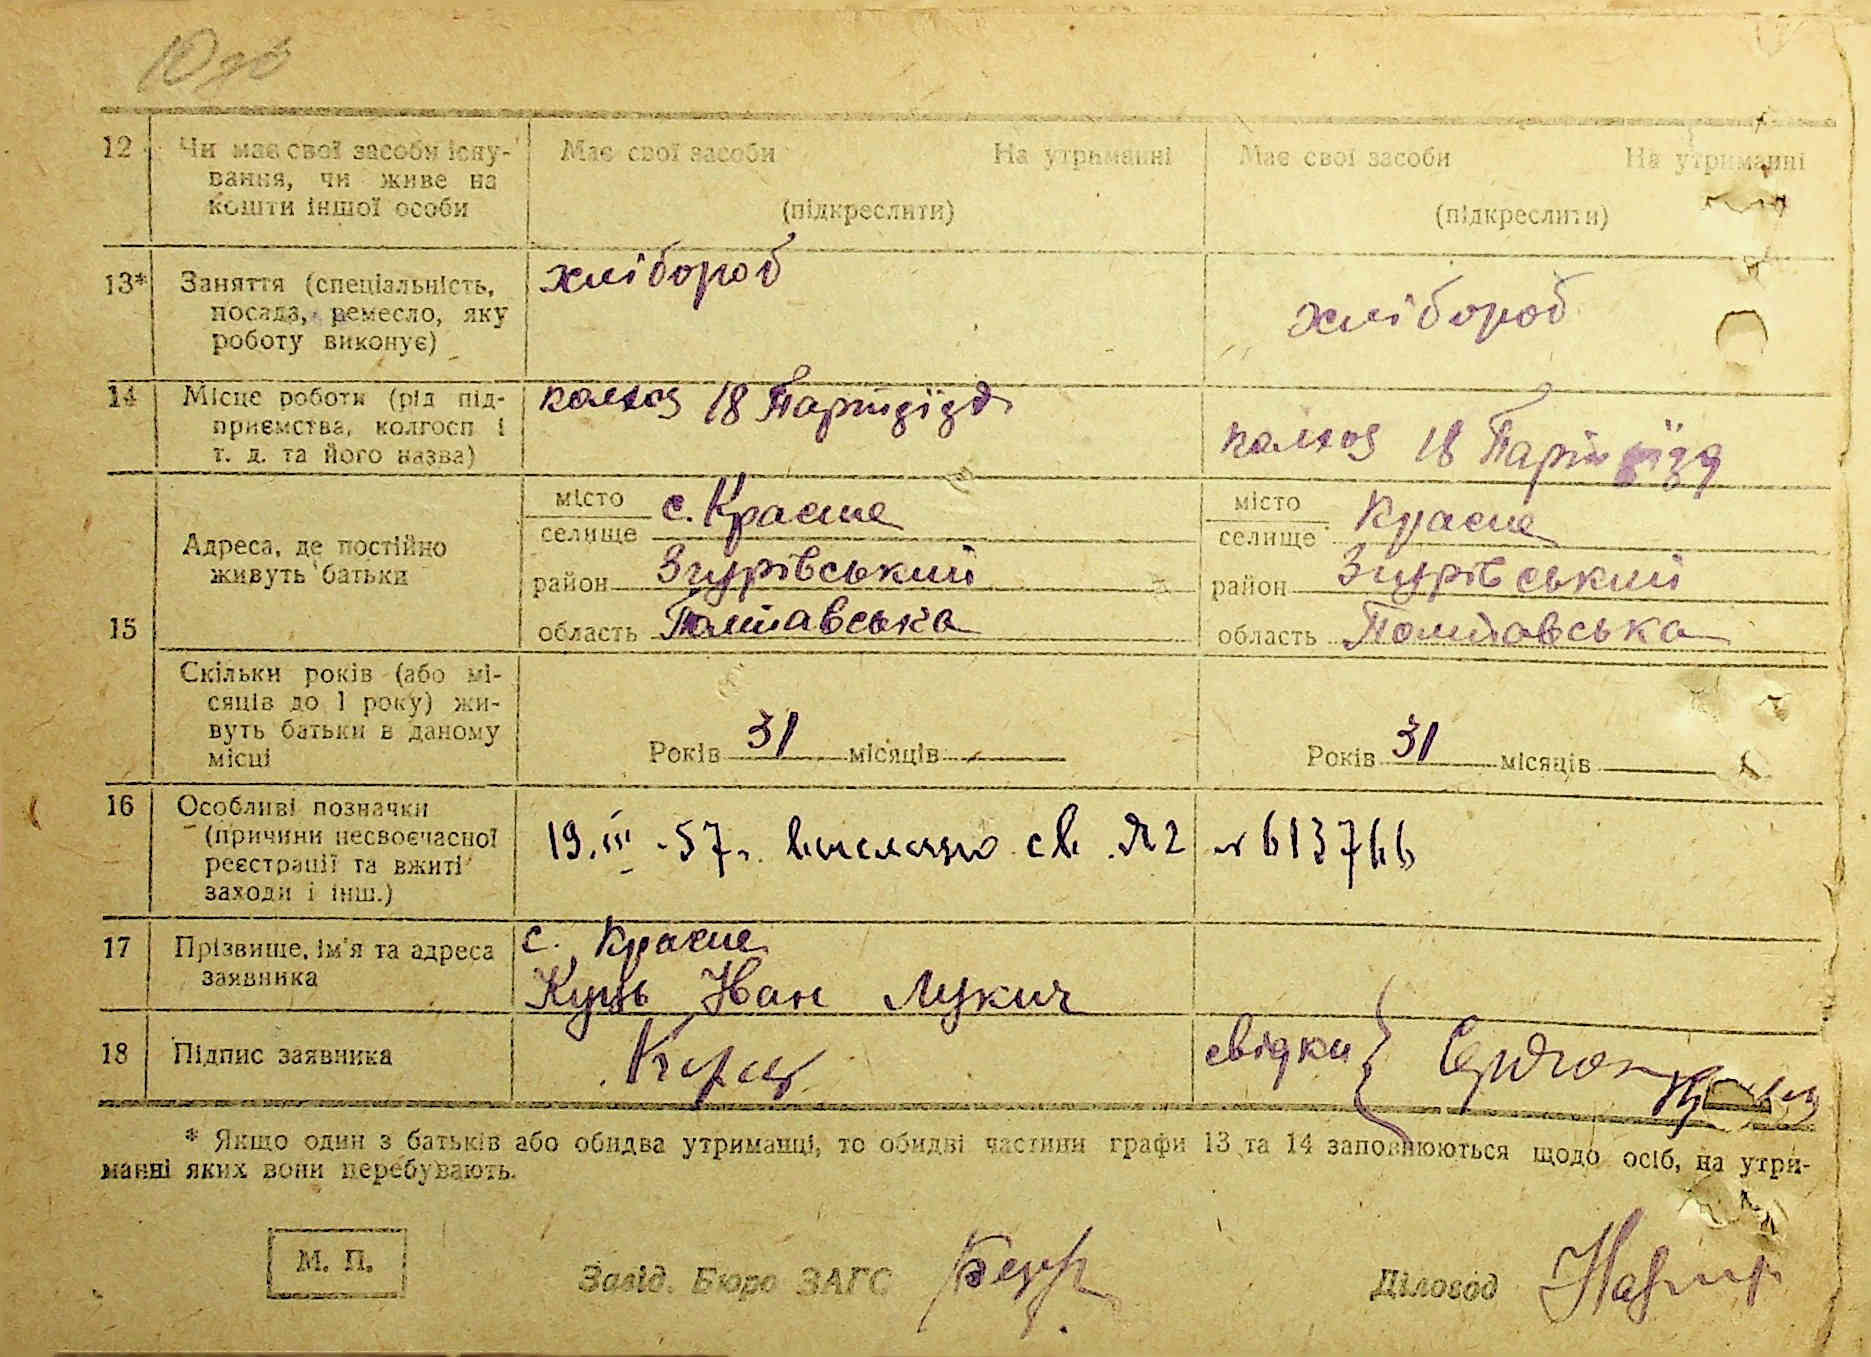 12 Чи має свої засоби існу- Має свої засоби На утриманні Має свої засоби На утриманні
вання, чи живе на
кошти іншої особи (підкреслити) (підкреслити)
13* Заняття (спеціальність, хлібороб хлібороб
посада, ремесло, яку
роботу виконує)
14 Місце роботи (рід під- колхоз 18 Партзїзд колхоз 18 Партзїзд
приємства, колгосп і
т. д. та його назва)
15 Адреса, де постійно
живуть батьки
місто с. Красне місто Красне
селище селище
район Згурівський район Згурівський
область Полтавська область Полтавська
Скільки років (або мі-
сяців до 1 року) жи-
вуть батьки в даному
місці
Років 31 місяців Років 31 місяців
16 Особливі позначки
(причини несвоєчасної 19.III-57г. вислано св. № 613766
реєстрації та вжиті
заходи і інш.)
17 Прізвище, ім'я та адреса с. Красне
заявника Куць Іван Лукич
18 Підпис заявника Куць свідки
* Якщо один з батьків або обидва утриманці, то обидві частини графи 13 та 14 заповнюються щодо осіб, на утри-
манні яких вони перебувають.
М. П. Завід. Бюро ЗАГС Діловод